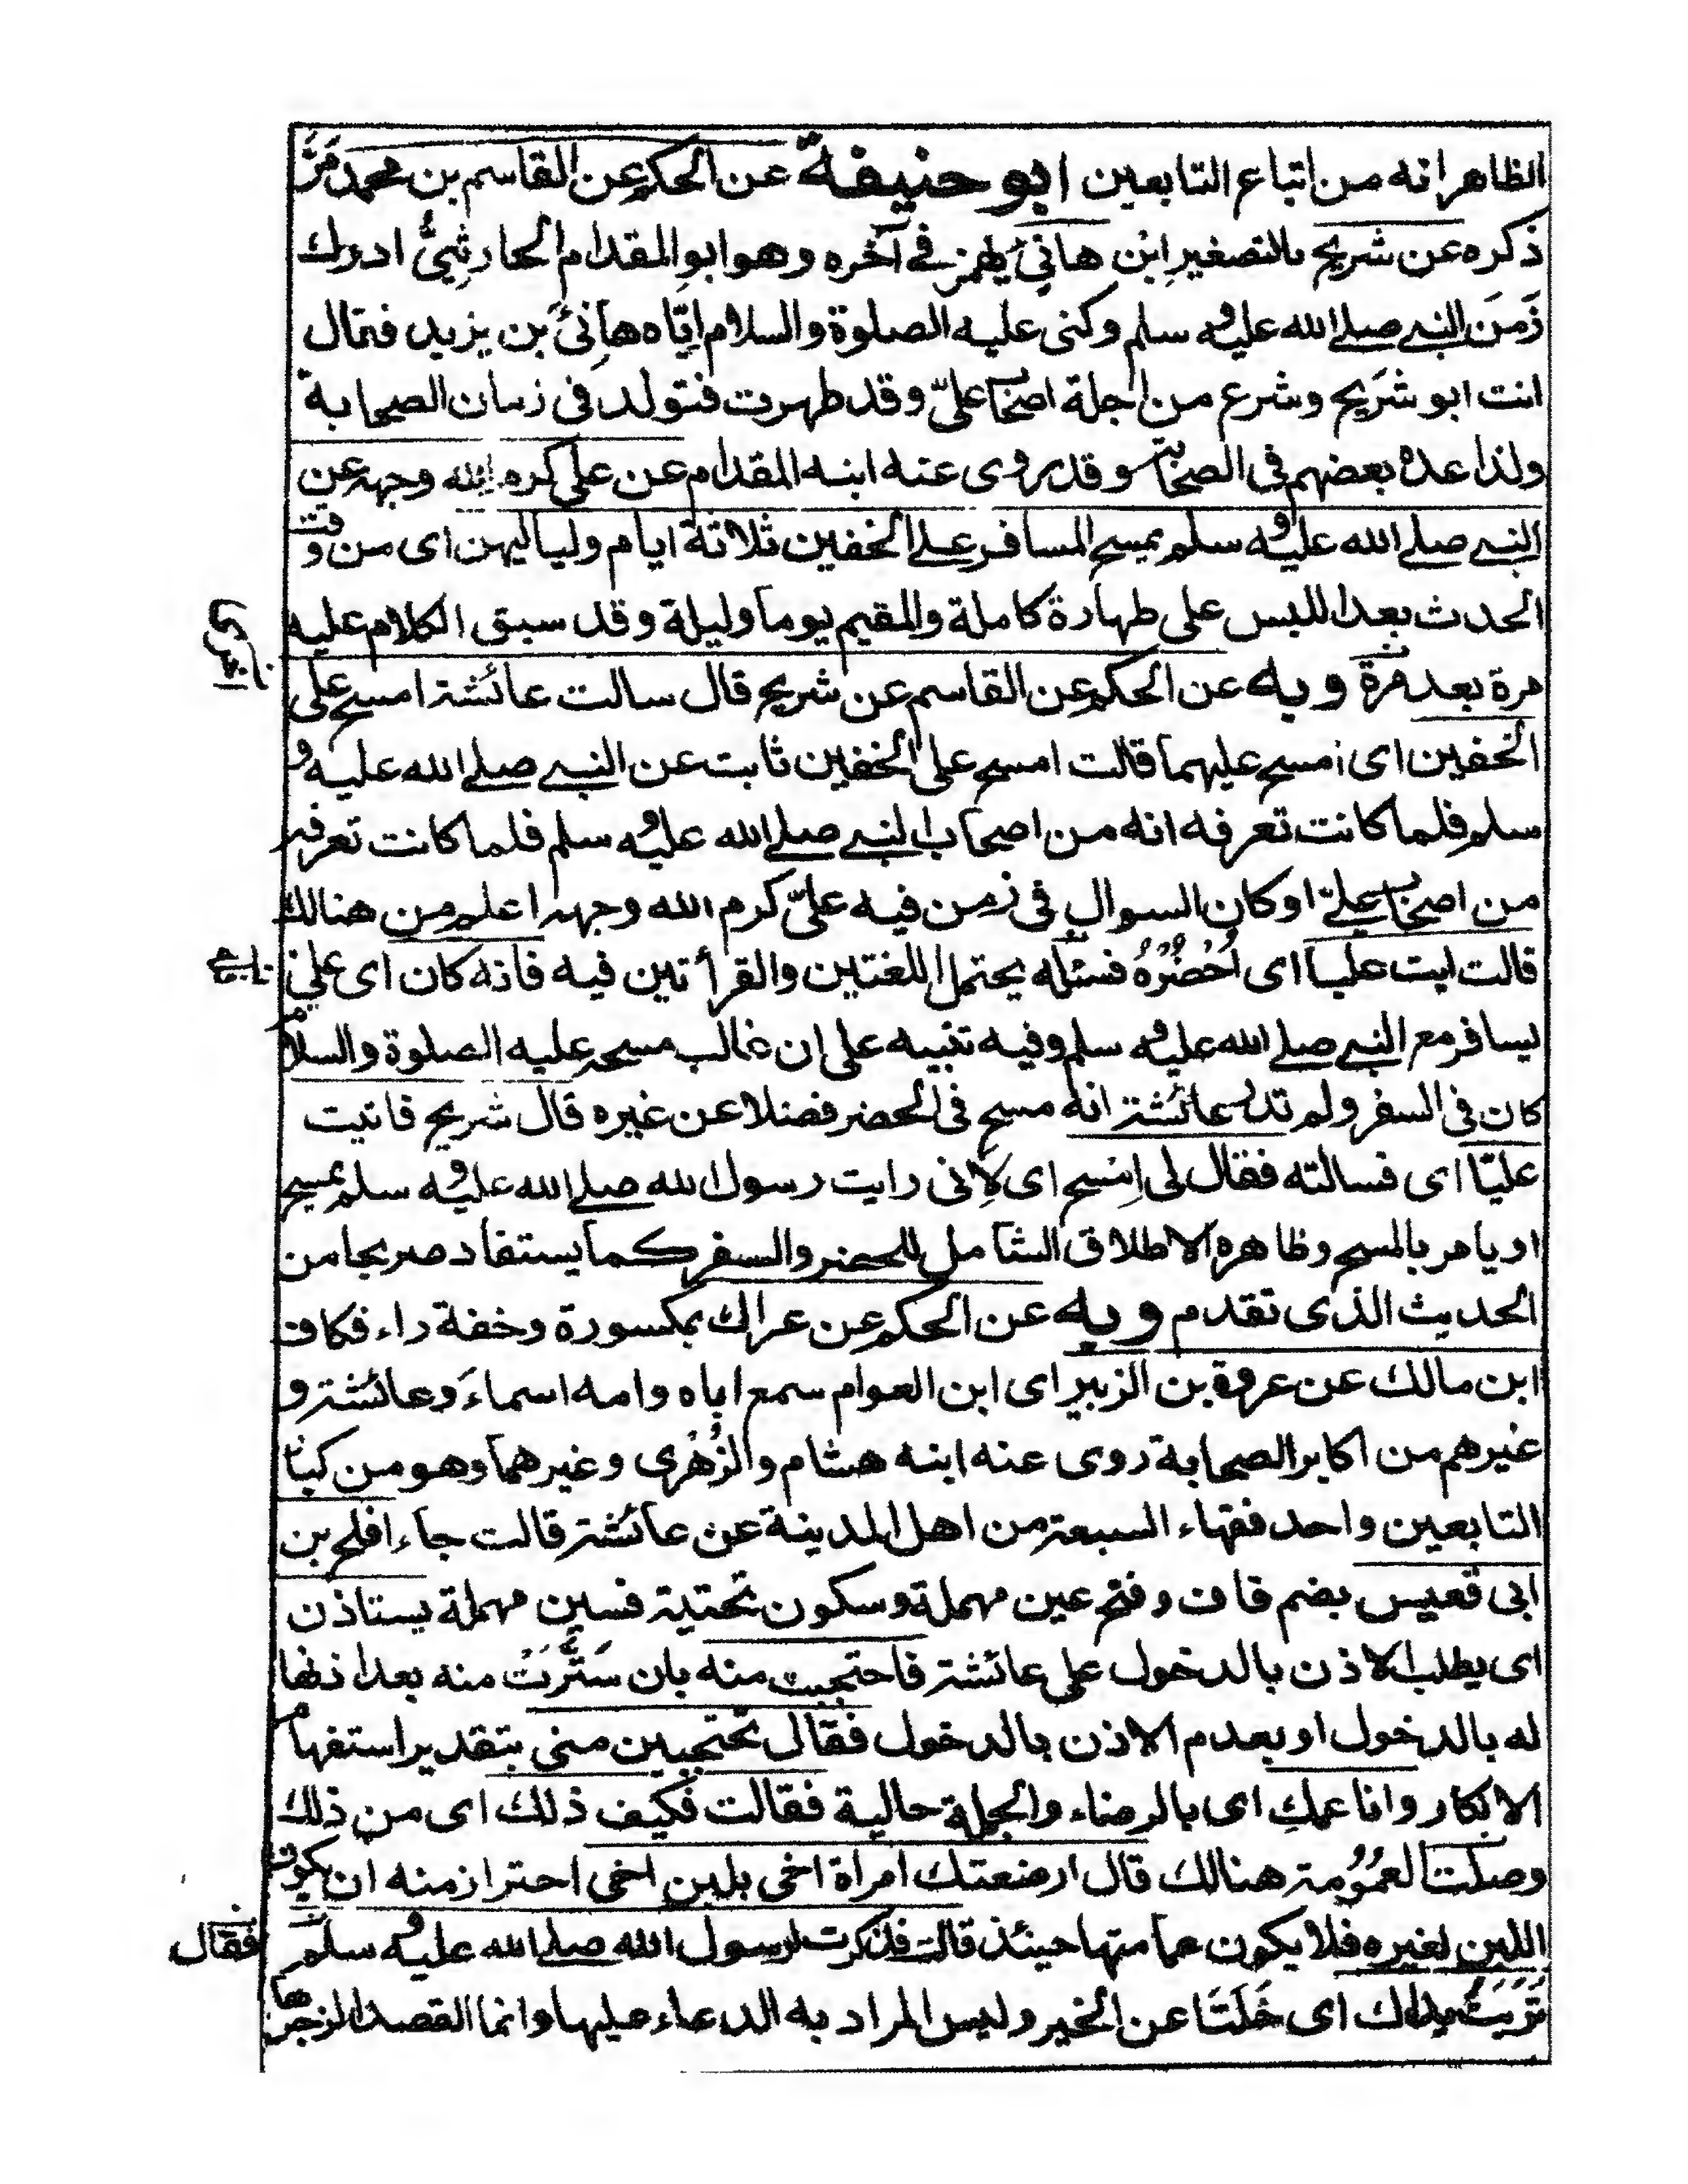 الظاهر انه من اتباع التابعين ابو حنيفة عن الحكم عن القاسم بن محمد مَرَّ
ذكره عن شريح بالتصغير ابْن هانئ بهمز في آخره وهو ابو المقدام الحارثِيُّ ادرك
زَمَنَ النبي صلى الله عليه و سلم وكنى عليه الصلوة والسلام ايّاه هانِئَ بن يزيد فقال
انت ابو شريح وشرع من اجلة اصحاب علىّ وقد ظهرت فتولد فى زمان الصحابة
ولذا عده بعضهم فى الصحابة وقد روى عنه ابنه المقدام عن على كرم الله وجهه عن
النبي صلى الله عليه و سلم يمسح المسافر على الخفين ثلاثة ايام ولياليهن اى من وقت
الحدث بعد اللبس على طهارة كاملة والمقيم يوما وليلة وقد سبق الكلام عليه
مرة بعد مرة وبه عن الحكم عن القاسم عن شريح قال سالت عائشة امسح على
الخفين اى امسح عليهما قالت امسح على الخفين ثابت عن النبي صلى الله عليه و
سلم فلما كانت تعرفه انه من اصحاب النبي صلى الله عليه و سلم فلما كانت تعرفه
من اصحاب علىّ او كان السوال فى زمن فيه علىّ كرم الله وجهه اعلم من هنالك
قالت ايت عليا اى اُحْضُرْهُ فسئله يحتمل اللغتين والقرأتين فيه فانه كان اى على
يسافر مع النبي صلى الله عليه و سلم وفيه تنبيه على ان غالب مسحه عليه الصلوة والسلام
كان فى السفر ولم تدر عائشة انه مسح فى الحضر فضلا عن غيره قال شريح فاتيت
عليّا اى فسالته فقال لى اِمْسح اى لِانى رايت رسول الله صلى الله عليه و سلم يمسح
او يامر بالمسح وظاهره الاطلاق الشامل للحضر والسفر كما يستفاد صريحا من
الحديث الذى تقدم وبه عن الحكم عن عراك بمكسورة وخفة راء فكاف
ابن مالك عن عروة بن الزبير اى ابن العوام سمع اباه وامه اسماءَ وعائشة و
غيرهم من اكابر الصحابة روى عنه ابنه هشام والزُهْرى وغيرهما وهو من كبار
التابعين واحد فقهاء السبعة من اهل المدينة عن عائشة قالت جاء افلح بن
ابى قعيس بضم قاف وفتح عين مهملة وسكون تحتية فسين مهملة يستاذن
اى يطلب الاذن بالدخول على عائشة فاحتجبت منه بان سَتَّرَتْ منه بعد اذنها
له بالدخول او بعدم الاذن بالدخول فقال تحتجبين منى بتقدير استفهام
الانكار وانا عمكِ اى بالرضاء والجملة حالية فقالت فكيف ذلك اى من ذلك
وصلت العمُوُمة هنالك قال ارضعتك امراة اخى بلبن اخى احترازمنه ان يكون
اللبن لغيره فلا يكون عمامتها حينئذ قالت فذكرت لرسول الله صلى الله عليه و سلم
فقال
تَرِبَتْ يداك اى خَلَتَا عن الخير وليس المراد به الدعاء عليها وانما القصد الزجر